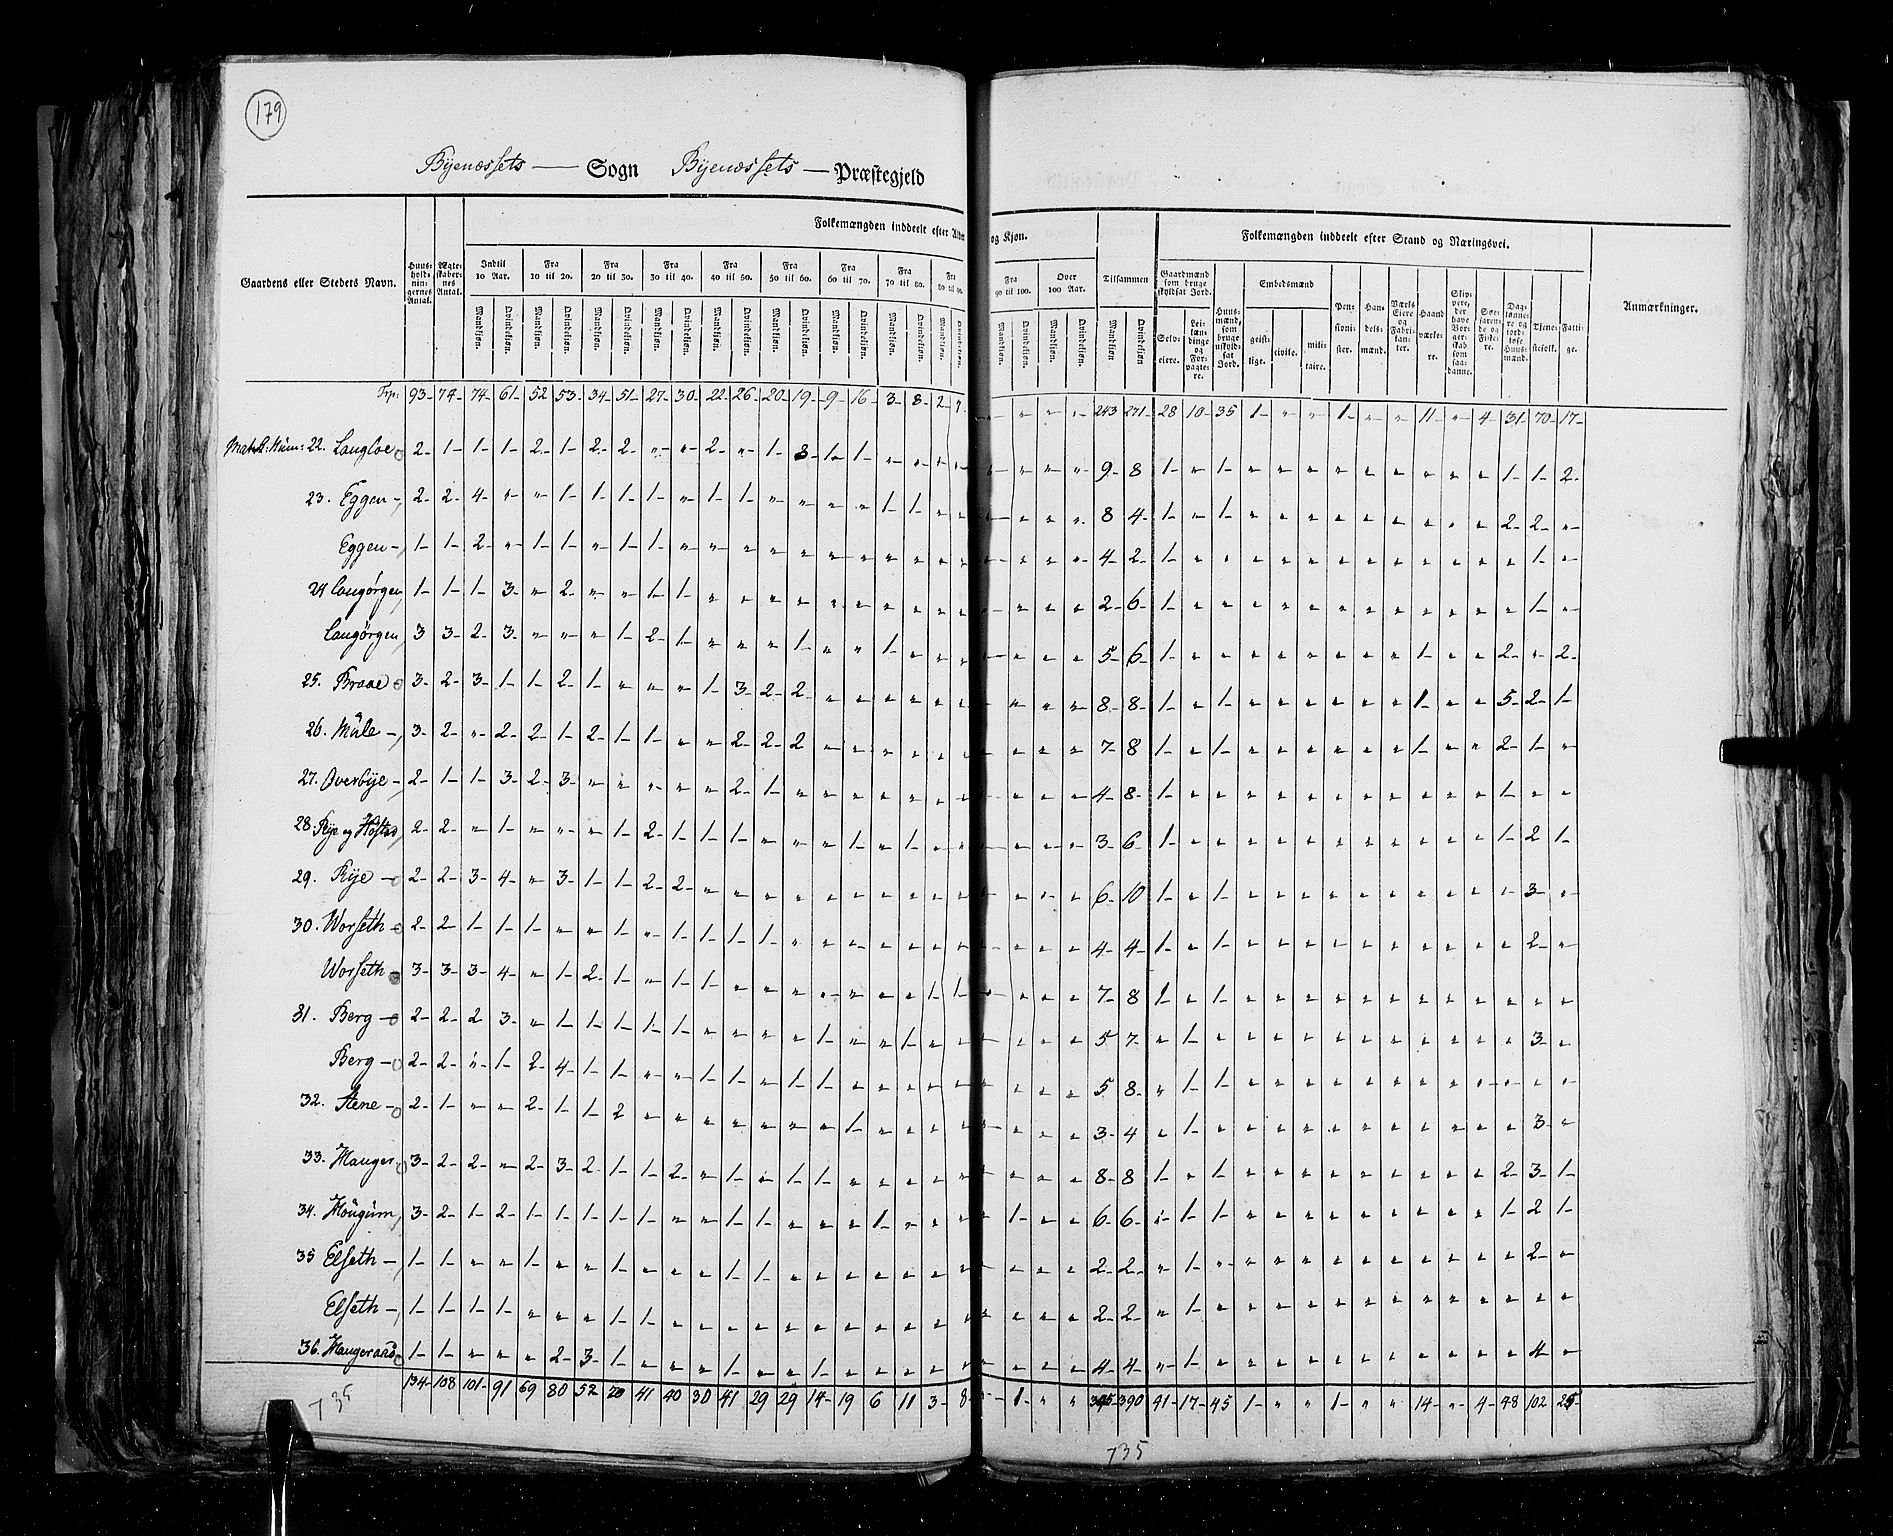 179
Byenæssets — Sogn Byenæssets — Præstegjeld
Gaardens eller Stedets Navn.
Huus-hold-nin-gernes Antal.
Ægte-skaber-nes Antal.
Folkemængden inddeelt efter Alder og Kjøn.
Indtil 10 Aar. Fra 10 til 20. Fra 20 til 30. Fra 30 til 40. Fra 40 til 50. Fra 50 til 60. Fra 60 til 70. Fra 70 til 80. Fra 80 til 90. Fra 90 til 100. Over 100 Aar. Tilsammen
Mandkjøn. Qvindekjøn.
Folkemængden inddeelt efter Stand og Næringsvei.
Gaardmænd som bruge skyldsat Jord.
Selv-eiere. Lei-læn-dinge og For-pagte-re.
Huus-mænd, som bruge uskyld-sat Jord.
Embedsmænd
geist-lige. civile. mili-taire.
Pen-sioni-ster. Han-dels-mænd. Værks Eiere og Fabri-kan-ter. Haand-værke-re. Skip-pere, der have Bor-ger-skab som saa-danne. Søe-farende og Fiske-re. Dag-lønne-re og jord-løse Huus-mænd. Tjene-stefolk. Fatti-ge.
Anmærkninger.
Trp: 93 74 74 61 52 53 34 51 27 30 22 26 20 19 9 16 3 8 2 7 " " " " 243 271 28 10 35 1 " " 1 " " 11 " 4 31 70 17
Matr: Num: 22. Langloe 2 1 1 1 2 1 2 2 " " 2 " 1 3 1 1 " " " " " " " " 9 8 1 " 1 " " " " " " " " " 1 1 2
23. Eggen 2 2 4 " " 1 1 1 1 " 1 1 " " " " 1 1 " " " " " " 8 4 1 " 1 " " " " " " " " " 2 2 "
Eggen 1 1 2 " 1 1 " 1 1 " " " " " " " " " " " " " " " 4 2 1 " " " " " " " " " " " " 1 "
24 Langørgen 1 1 1 3 " 2 " " 1 1 " " " " " " " " " " " " " " 2 6 1 " " " " " " " " " " " " 1 "
Langörgen 3 3 2 3 " " " 1 2 1 " " " 1 " " 1 " " " " " " " 5 6 1 " " " " " " " " 1 " " 2 " 2
25. Braae 3 2 3 1 1 2 1 " " " 1 3 2 2 " " " " " " " " " " 8 8 1 " 1 " " " " " " 1 " " 5 2 1
26. Måle 3 2 " 2 2 1 2 1 1 " " 2 2 2 " " " " " " " " " " 7 8 1 " 1 " " " " " " 1 " " 2 1 "
27. Overbye 2 1 1 3 2 3 " " " " " 2 1 " " " " " " " " " " " 4 8 1 " " " " " " " " " " " 1 " "
28. Rye og Hofstad 2 2 " 1 " " " 1 2 1 1 1 " " " 1 " 1 " " " " " " 3 6 1 " " " " " " " " " " " 1 2 1
29. Rye 2 2 3 4 " 3 1 1 2 2 " " " " " " " " " " " " " " 6 10 1 " 1 " " " " " " " " " " 3 "
30. Worseth 2 2 1 1 1 " " 1 " 1 1 1 1 " " " " " " " " " " " 4 4 1 " 1 " " " " " " " " " " 2 "
Worseth 3 3 3 4 " 1 2 1 " 1 1 " " " " " " " 1 1 " " " " 7 8 1 " 1 " " " " " " " " " " " "
31. Berg 2 2 2 3 " 1 1 1 1 1 " " " " 1 " " 1 " " " " " " 5 7 " 1 " " " " " " " " " " " 3 "
Berg 2 2 " 1 2 4 1 1 " " 1 1 " 1 1 " " " " " " " " " 5 8 " 1 1 " " " " " " " " " " " "
32. Stene 2 1 " " 2 1 1 2 " " " " " " " 1 " " " " " " " " 3 4 " 1 " " " " " " " " " " " 3 "
33. Hanger 3 2 2 " 2 3 2 1 1 2 " 1 " 1 1 " " " " " " " " " 8 8 1 " 1 " " " " " " " " " 2 3 1
34. Hougum 3 2 1 2 1 1 1 1 1 " " 1 1 " " " 1 " " " " 1 " " 6 6 " 1 1 " " " " " " " " " 1 2 1
35 Elseth 1 1 " " 1 " " 1 " " " 1 1 " " " " " " " " " " " 2 2 " 1 " " " " " " " " " " " 2 "
Elseth 1 1 1 1 " " " 1 1 " " " " " " " " " " " " " " " 2 2 " 1 " " " " " " " " " " " " "
36. Hangeraas 1 1 " " " 2 3 1 " " " 1 " " 1 " " " " " " " " " 4 4 " 1 " " " " " " " " " " " 4 "
134 108 101 91 69 80 52 70 41 40 30 41 29 29 14 19 6 11 3 8 " 1 " " 345 390 41 17 45 1 " " 1 " " 14 " 4 48 102 25
735
735